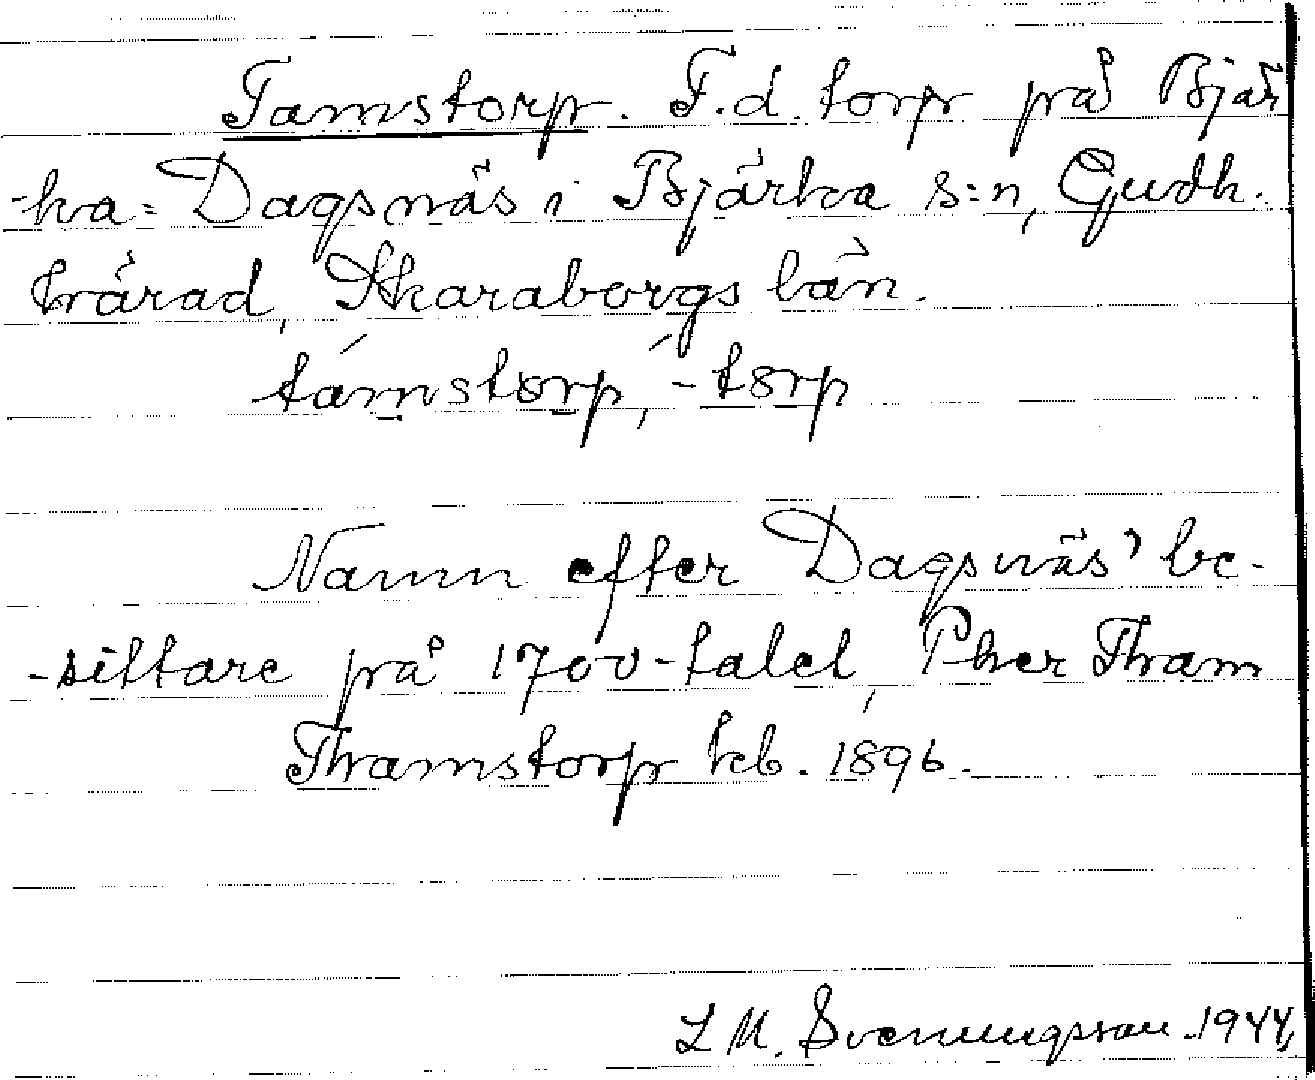 Tamstorp. F.d. torp på Bjär
-ka=Dagsnäs i Bjärka s:n, Gudh.
härad, Skaraborgs län.
támstorp, ́-torp
Namn efter Dagsnäs' be-
-sittare på 1700-talet, Pher Tham
Thamstorp kb. 1896.
L M. Svenungsson 1944,